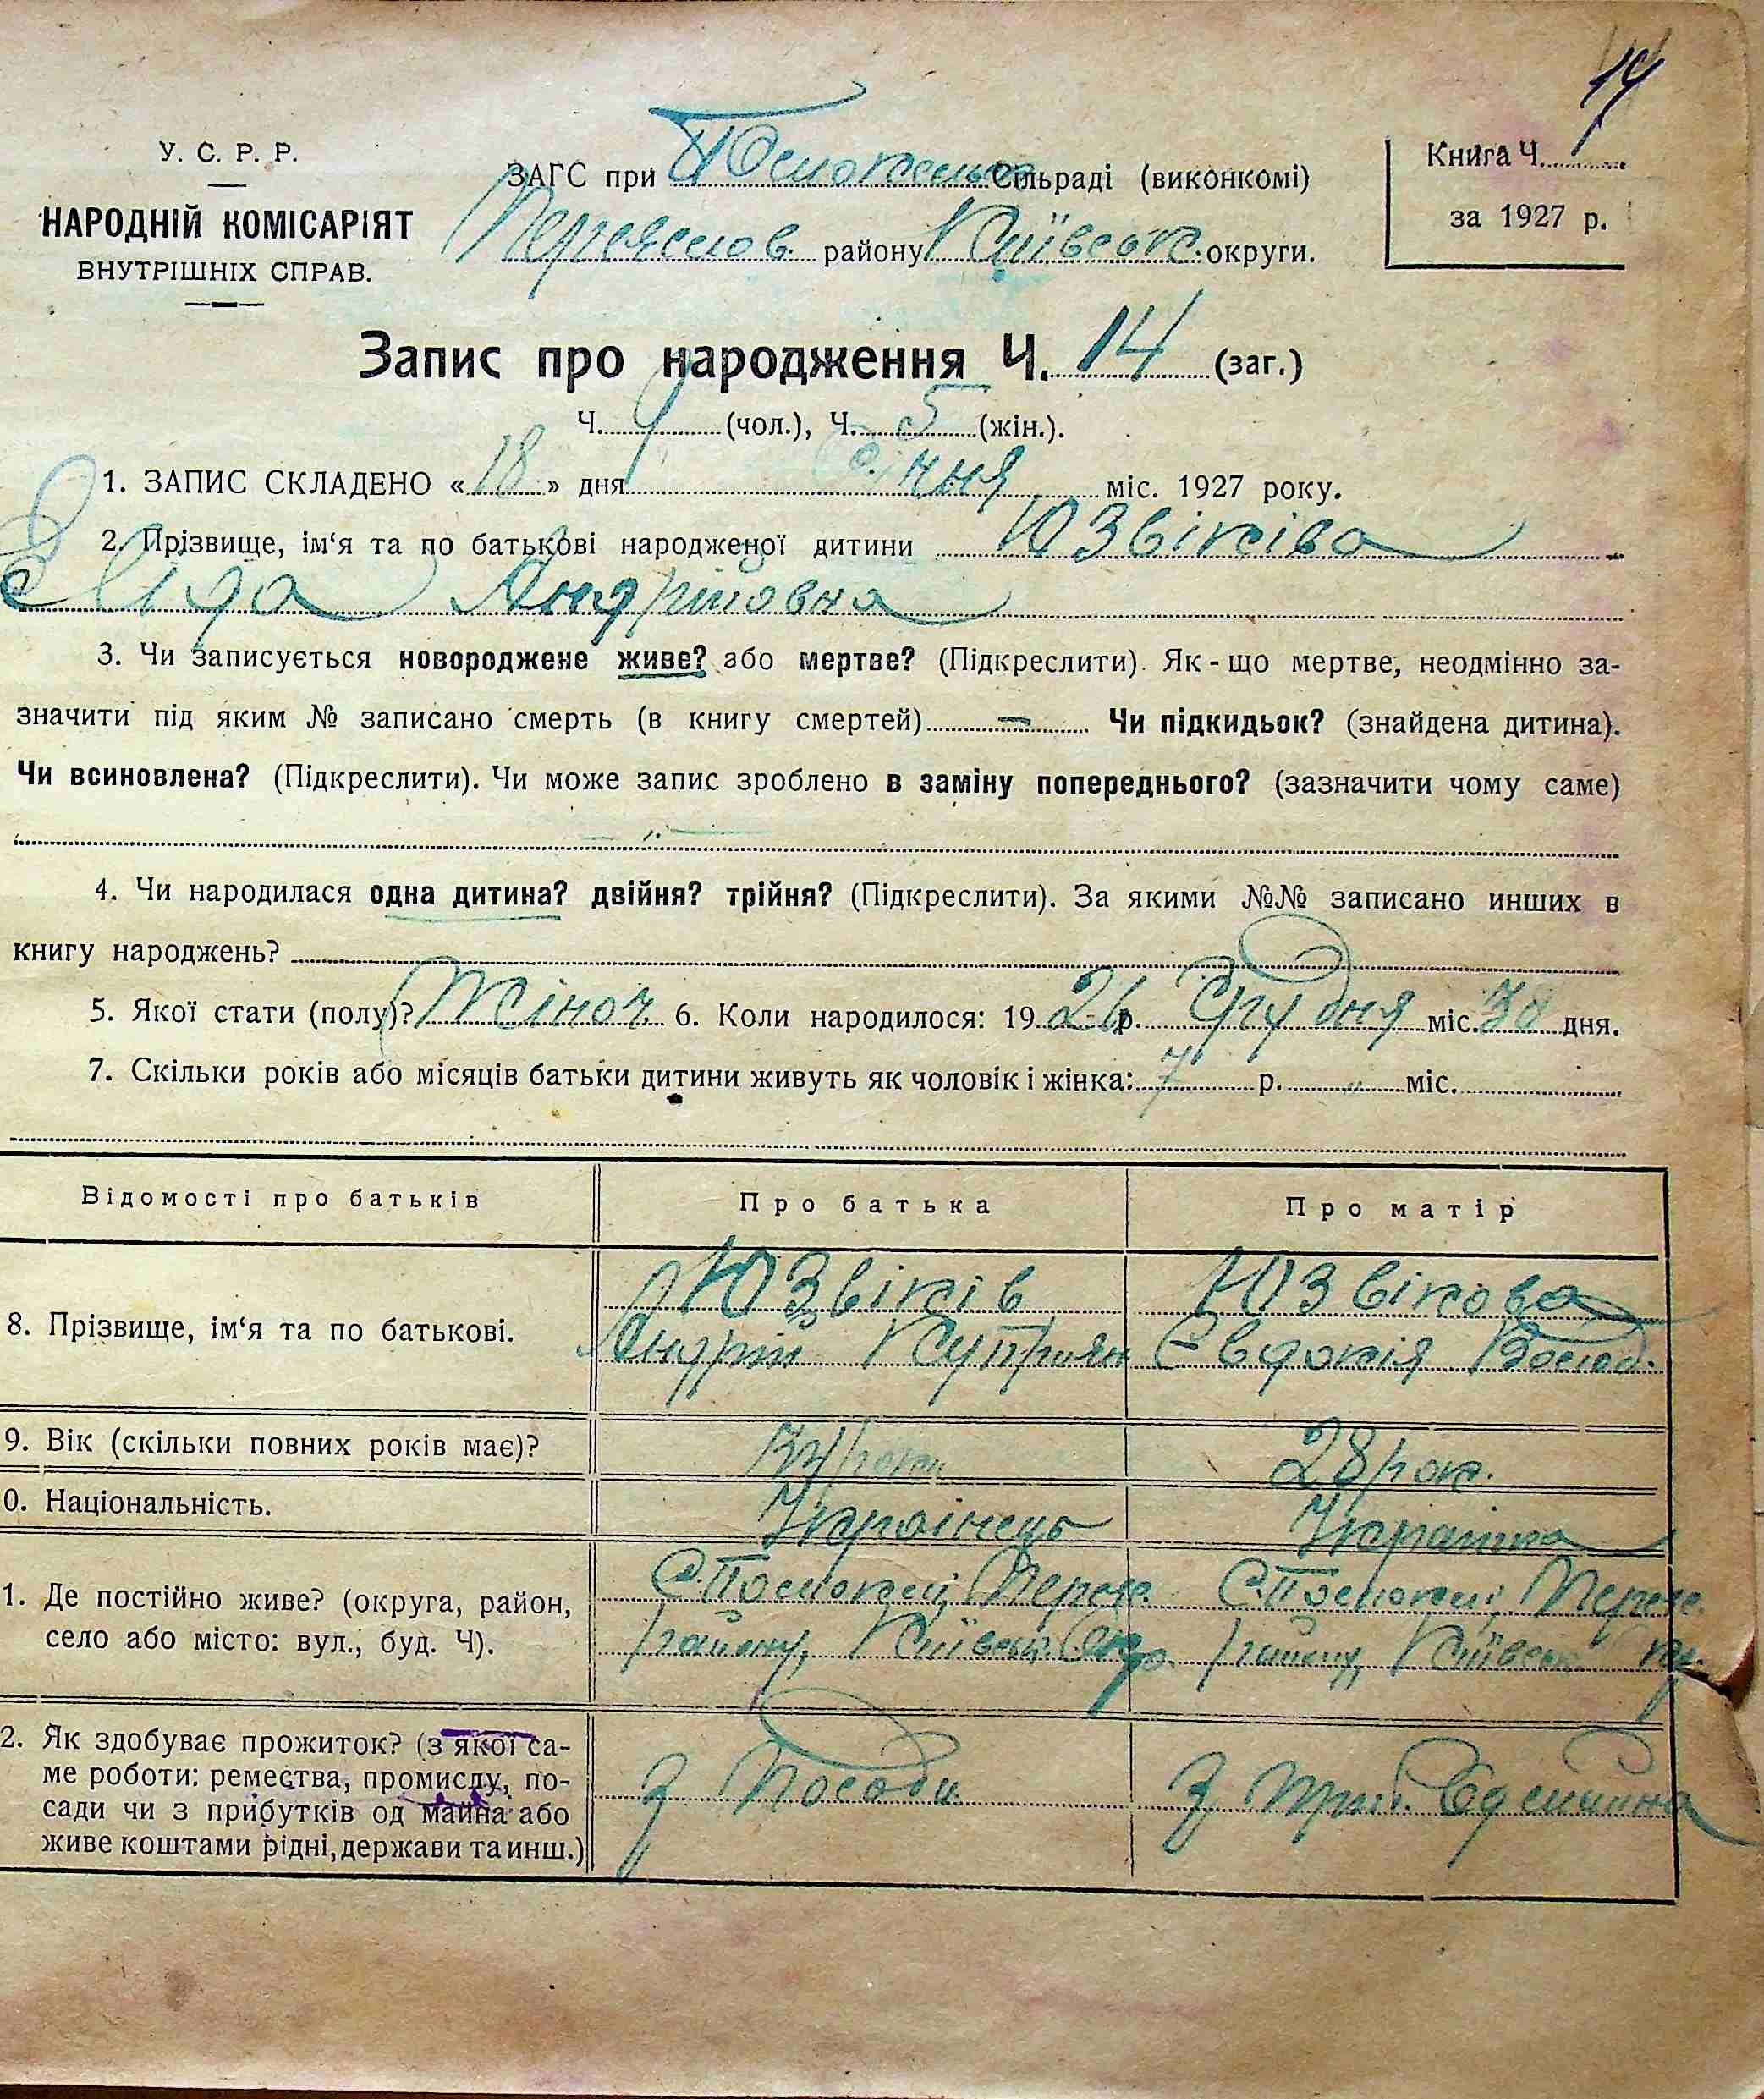 14
У. С. Р. Р.
НАРОДНІЙ КОМІСАРІЯТ
ВНУТРІШНІХ СПРАВ.
ЗАГС при Сільраді (виконкомі)
Переяслов. району Київськ. округи.
Книга Ч.
за 1927 р.
Запис про народження Ч. 14 (заг.)
Ч. 9 (чол.), Ч. 5 (жін.).
1. ЗАПИС СКЛАДЕНО «18» дня січня міс. 1927 року.
2. Прізвище, ім‘я та по батькові народженої дитини Юзвіківа
Ліда Андріїовна
3. Чи записується новороджене живе? або мертве? (Підкреслити). Як-що мертве, неодмінно за-
значити під яким № записано смерть (в книгу смертей) — Чи підкидьок? (знайдена дитина).
Чи всиновлена? (Підкреслити). Чи може запис зроблено в заміну попереднього? (зазначити чому саме)
— „ —
4. Чи народилася одна дитина? двійня? трійня? (Підкреслити). За якими №№ записано инших в
книгу народжень?
5. Якої стати (полу)? Жіноч. 6. Коли народилося: 1926 р. Грудня міс. 30 дня.
7. Скільки років або місяців батьки дитини живуть як чоловік і жінка: 7 р. „ міс.
Відомості про батьків Про батька Про матір
8. Прізвище, ім‘я та по батькові.
Юзвіків Юзвікова
Андрій Куприян Євдокія
9. Вік (скільки повних років має)? 28 рок.
0. Національність. Українець Українка
1. Де постійно живе? (округа, район,
село або місто: вул., буд. Ч).
районну, Київськ. Окр. районну, Київськ Окр.
2. Як здобуває прожиток? (з якої са-
ме роботи: ремества, промислу, по-
сади чи з прибутків од майна або
живе коштами рідні, держави та инш.)
З Посади З